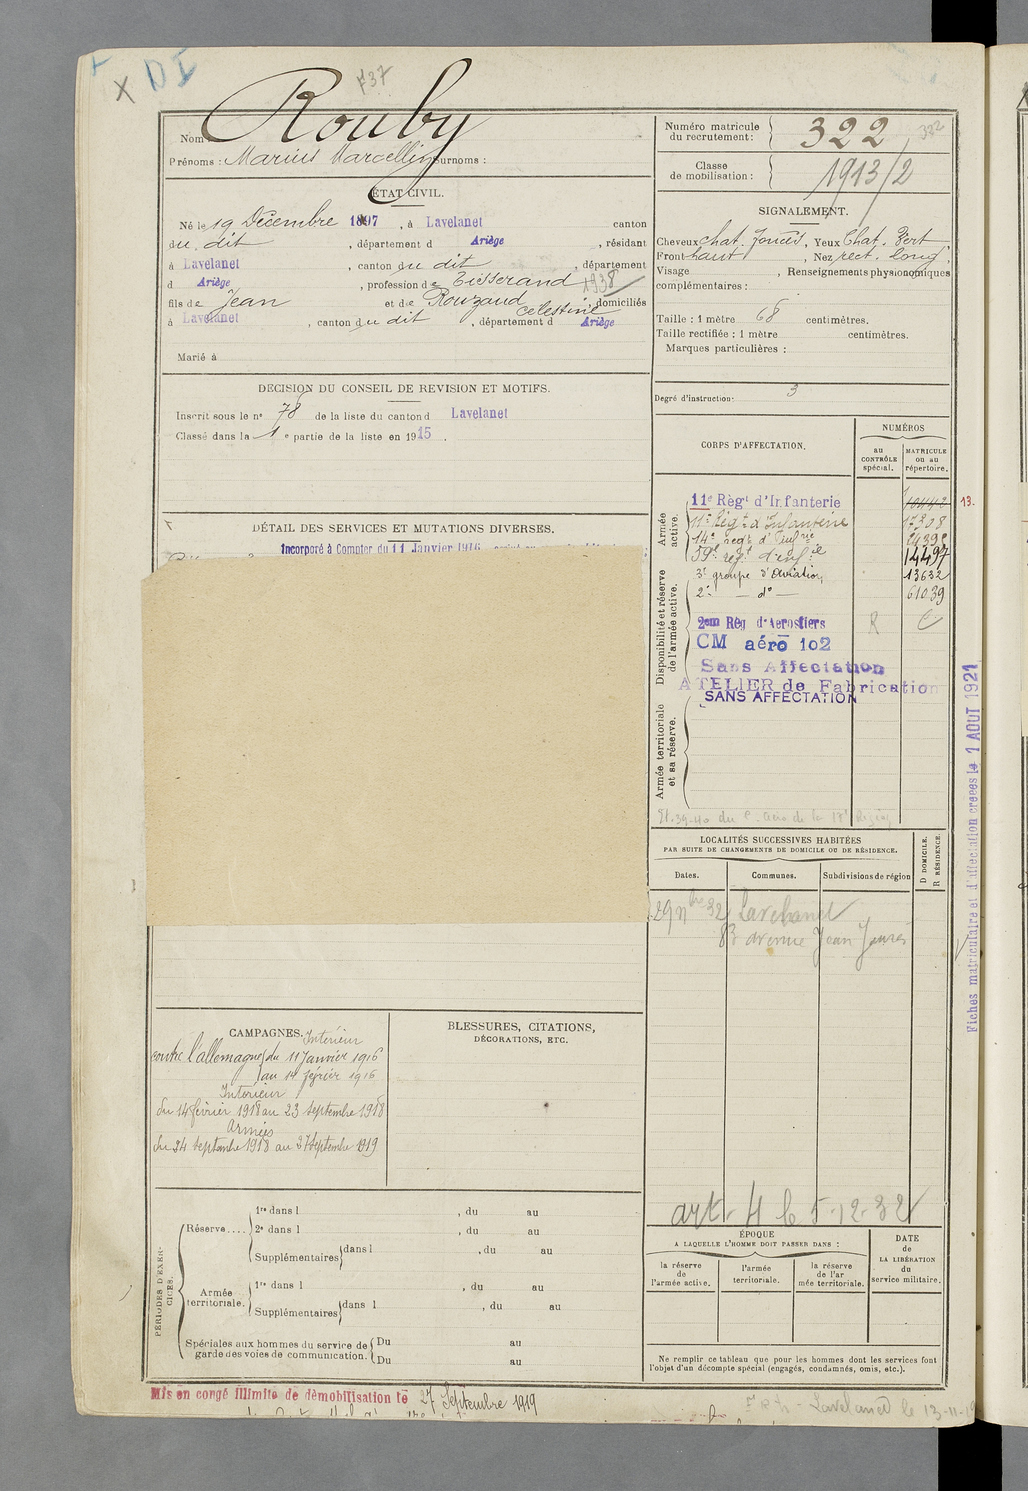 X DI
F37
Rouby
Nom :
Prénoms : Marius Marcellin Surnoms :
Numéro matricule du recrutement : 322
332
Classe de mobilisation : 1913/2
ÉTAT CIVIL.
Né le 19 Décembre 1897, à Lavelanet canton
du dit, département d Ariège, résidant
à Lavelanet, canton du dit, département
d Ariège, profession de Tisserand 1938
fils de Jean et de Rouzaud Célestine, domiciliés
à Lavelanet, canton du dit, département d Ariège
Marié à
SIGNALEMENT.
Cheveux chat. foncés, Yeux Chat. Vert
Front haut, Nez rect. long
Visage , Renseignements physionomiques
complémentaires :
Taille : 1 mètre 68 centimètres.
Taille rectifiée : 1 mètre centimètres.
Marques particulières :
Degré d'instruction : 3
DECISION DU CONSEIL DE REVISION ET MOTIFS.
Inscrit sous le n° 78 de la liste du canton d Lavelanet
Classé dans la 1e partie de la liste en 1915.
DÉTAIL DES SERVICES ET MUTATIONS DIVERSES.
Incorporé à Compter du 11 Janvier 1916
CORPS D'AFFECTATION.
NUMÉROS
au CONTRÔLE spécial.
MATRICULE ou au répertoire.
Armée active.
11e Règt d'Infanterie 10442
13.
11e Régt d'Infanterie 17308
14e regt d'Infrie
59e regt d'infie 14497
3e groupe d'Aviation 13632
2e — do — 61039
Disponibilité et réserve de l'armée active.
2em Rég d'Aerostiers R
CM aéro 102
Sans Affectation
ATELIER de Fabrication
SANS AFFECTATION
Armée territoriale et sa réserve.
Fiches matriculaire et d'affectation créées le 1 AOUT 1921
LOCALITÉS SUCCESSIVES HABITÉES
PAR SUITE DE CHANGEMENTS DE DOMICILE OU DE RÉSIDENCE.
Dates. Communes. Subdivisions de région D DOMICILE. R RÉSIDENCE.
29 nbre 32 Lavelanet
83 avenue Jean Jaures
art. 4 L 5-12-32
CAMPAGNES.
Intérieur
contre l'allemagne du 11 Janvier 1916
au 14 février 1916
Intérieur
du 14 février 1918 au 23 septembre 1918
Armées
du 24 septembre 1918 au 27 septembre 1919
BLESSURES, CITATIONS,
DÉCORATIONS, ETC.
PÉRIODES D'EXERCICES.
Réserve.... 1re dans l , du au
2e dans l , du au
Supplémentaires dans l , du au
Armée territoriale. 1re dans l , du au
Supplémentaires dans l , du au
Spéciales aux hommes du service de garde des voies de communication. Du au
Du au
ÉPOQUE
A LAQUELLE L'HOMME DOIT PASSER DANS :
la réserve de l'armée active.
l'armée territoriale.
la réserve de l'armée territoriale.
DATE de LA LIBÉRATION du service militaire.
Ne remplir ce tableau que pour les hommes dont les services font
l'objet d'un décompte spécial (engagés, condamnés, omis, etc.).
Mis en congé illimité de démobilisation le 27 Septembre 1919
Lavelanet le 13-11-